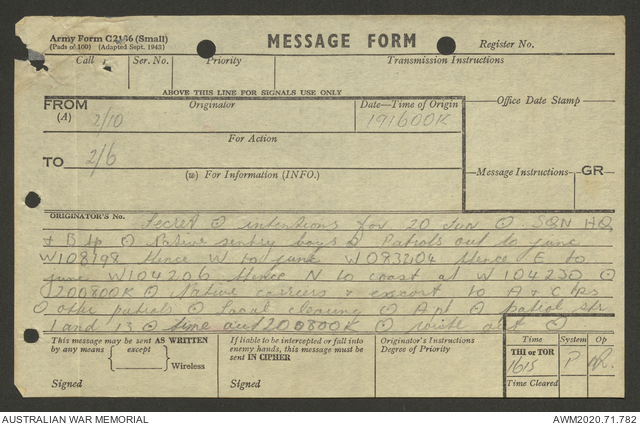 Army Form C2136 (Small)
(Pads of 100) (Adapted Sept. 1943)
MESSAGE FORM
Register No.
Call
Ser. No.
Priority
Transmission Instructions
ABOVE THIS LINE FOR SIGNALS USE ONLY
FROM
(A)
2/10
Originator
Date—Time of Origin
191600K
Office Date Stamp
For Action
TO
2/6
(w) For Information (INFO.)
Message Instructions
GR
ORIGINATOR'S No.
Secret ⊙ intentions for 20 Jun ⊙ SQN HQ
& B Tp ⊙ Native sentry boys ⊙ Patrols out to junc
W108198 thence W to junc W083204 thence E to
junc W104206 thence N to coast at W104230 ⊙
200800K ⊙ Native carriers & escort to A & C Tps
⊙ other patrols ⊙ Local cleaning ⊙ A pt ⊙ patrol str
1 and 13 ⊙ time out 200800K ⊙ route out ⊙
This message may be sent AS WRITTEN
by any means except Wireless
Signed
If liable to be intercepted or fall into
enemy hands, this message must be
sent IN CIPHER
Signed
Originator's Instructions
Degree of Priority
Time
System
Op
THI or TOR
1615
P
Time Cleared
AUSTRALIAN WAR MEMORIAL
AWM2020.71.782